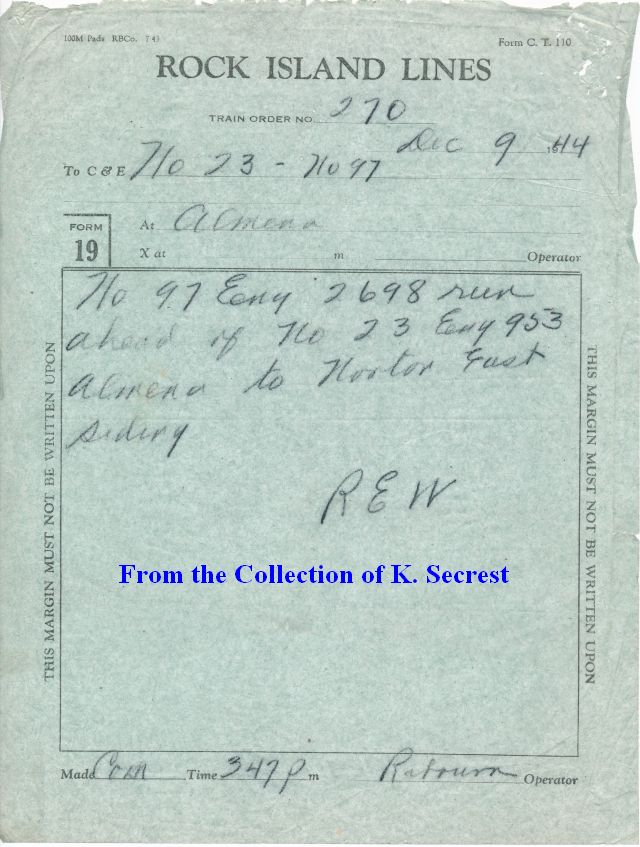 100M Pads RBCo. 7 43
Form C. T. 110
ROCK ISLAND LINES
TRAIN ORDER NO. 270
Dec 9 1944
To C & E No 23 - No 97
FORM
19
At Almena
X at m Operator
No 97 Eng 2698 run
ahead of No 23 Eng 953
Almena to Norton East
siding
R E W
From the Collection of K. Secrest
THIS MARGIN MUST NOT BE WRITTEN UPON
THIS MARGIN MUST NOT BE WRITTEN UPON
Made Com Time 347 P m Operator